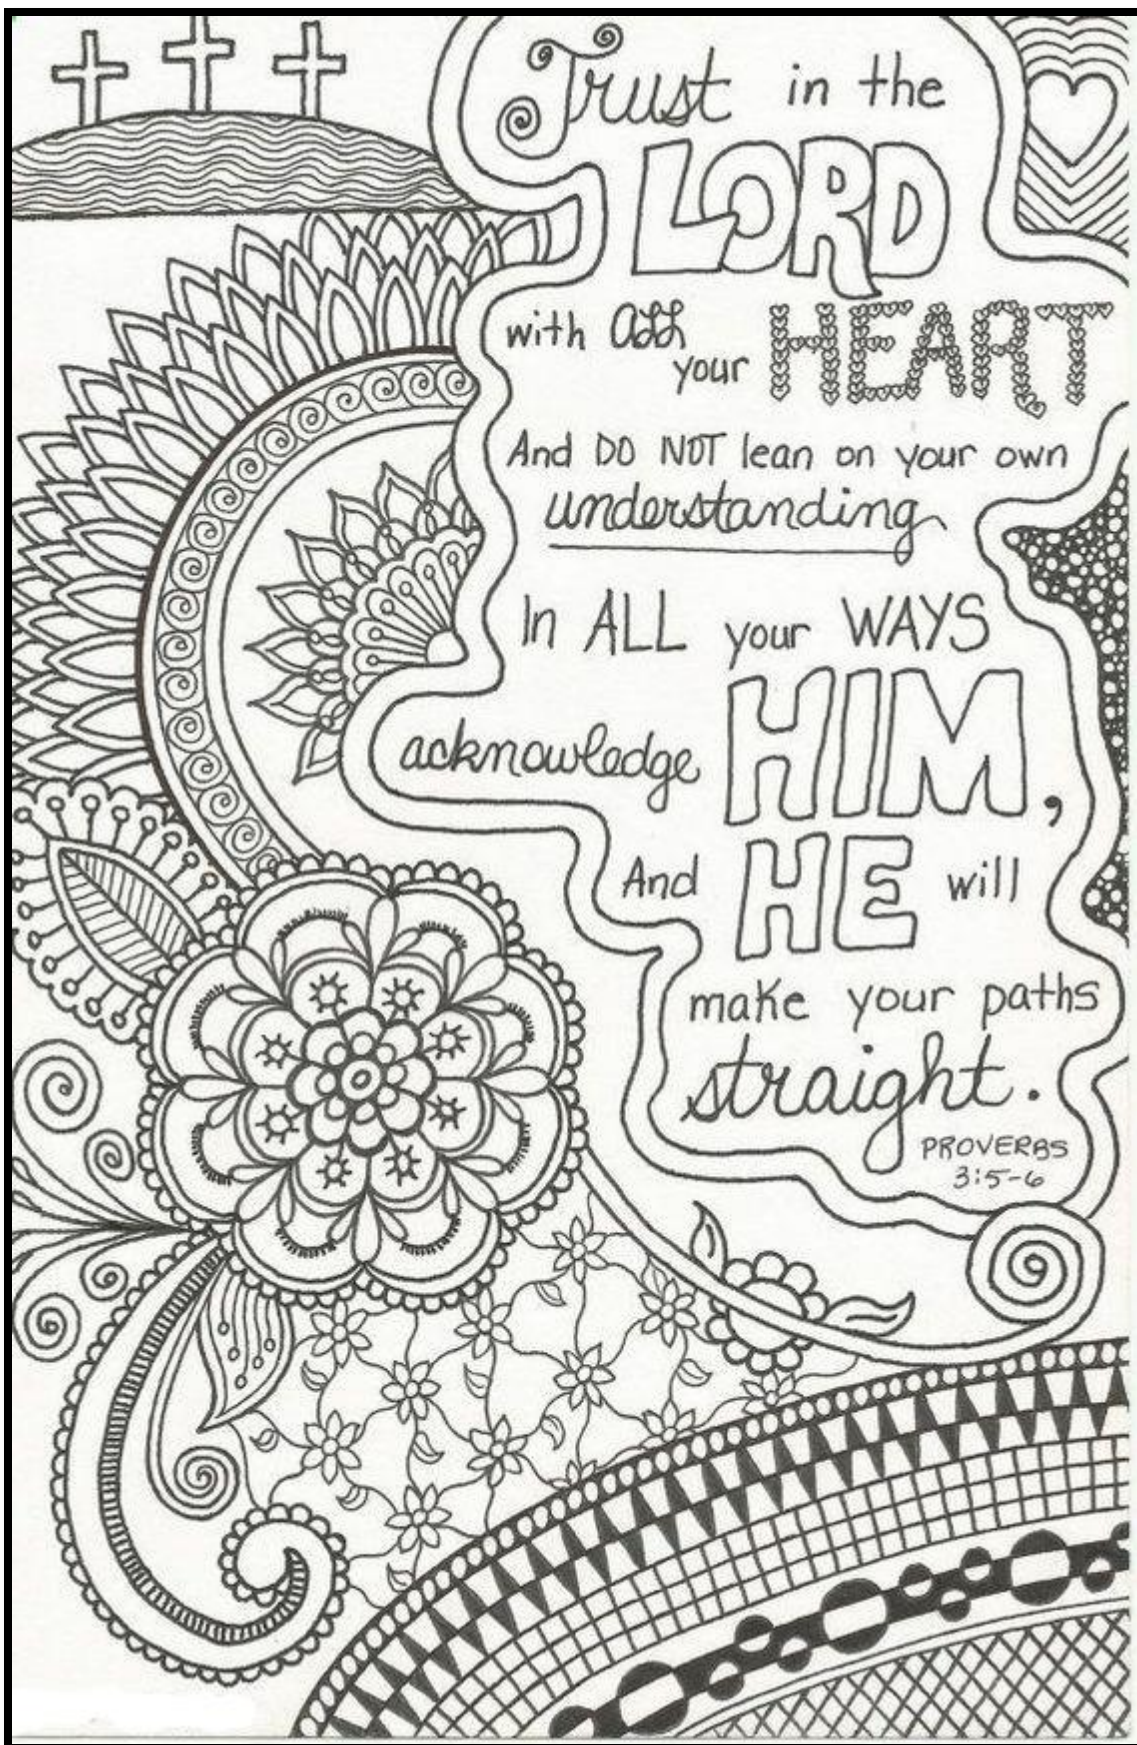 Trust in the
LORD
with all
your HEART
And DO NOT lean on your own
understanding
In ALL your WAYS
acknowledge HIM,
And HE will
make your paths
straight.
PROVERBS
3:5-6